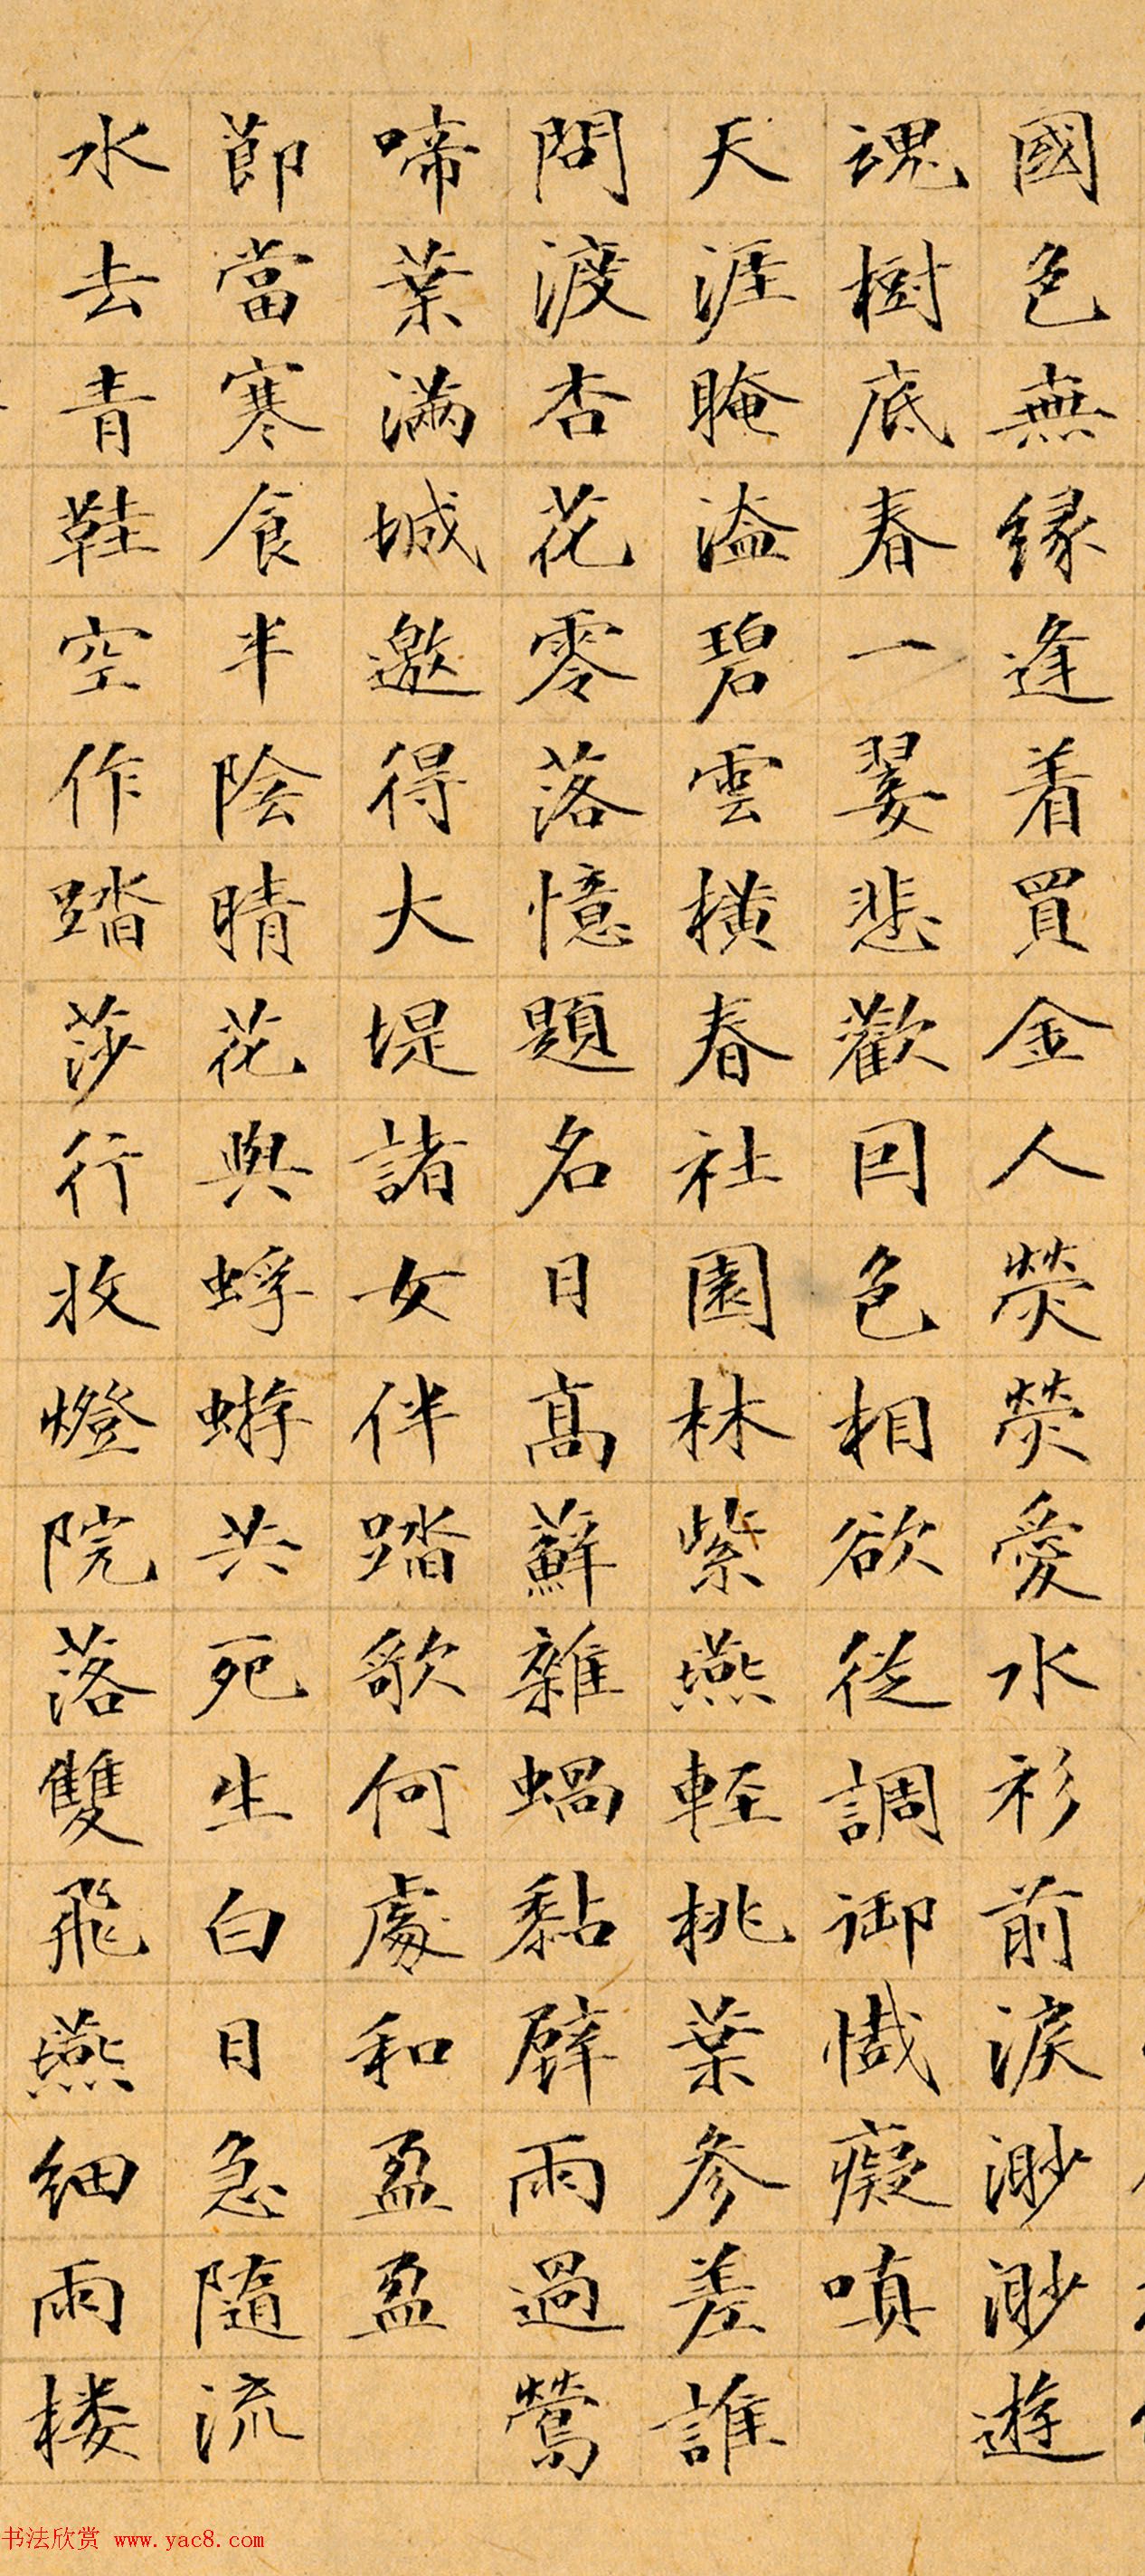 國色無緣逢着買金人熒熒愛水衫前淚渺渺遊
魂樹底春一翣悲歡回色相欲從調御懺癡嗔
天涯晻溘碧雲橫春社園林紫燕輕桃葉參差誰
問渡杏花零落憶題名日高蘚雜蝸黏壁雨過鶯
啼葉滿城邀得大堤諸女伴踏歌何處和盈盈
節當寒食半陰晴花與蜉蝣共死生白日急隨流
水去青鞋空作踏莎行收燈院落雙飛燕細雨楼
书法欣赏 www.yac8.com